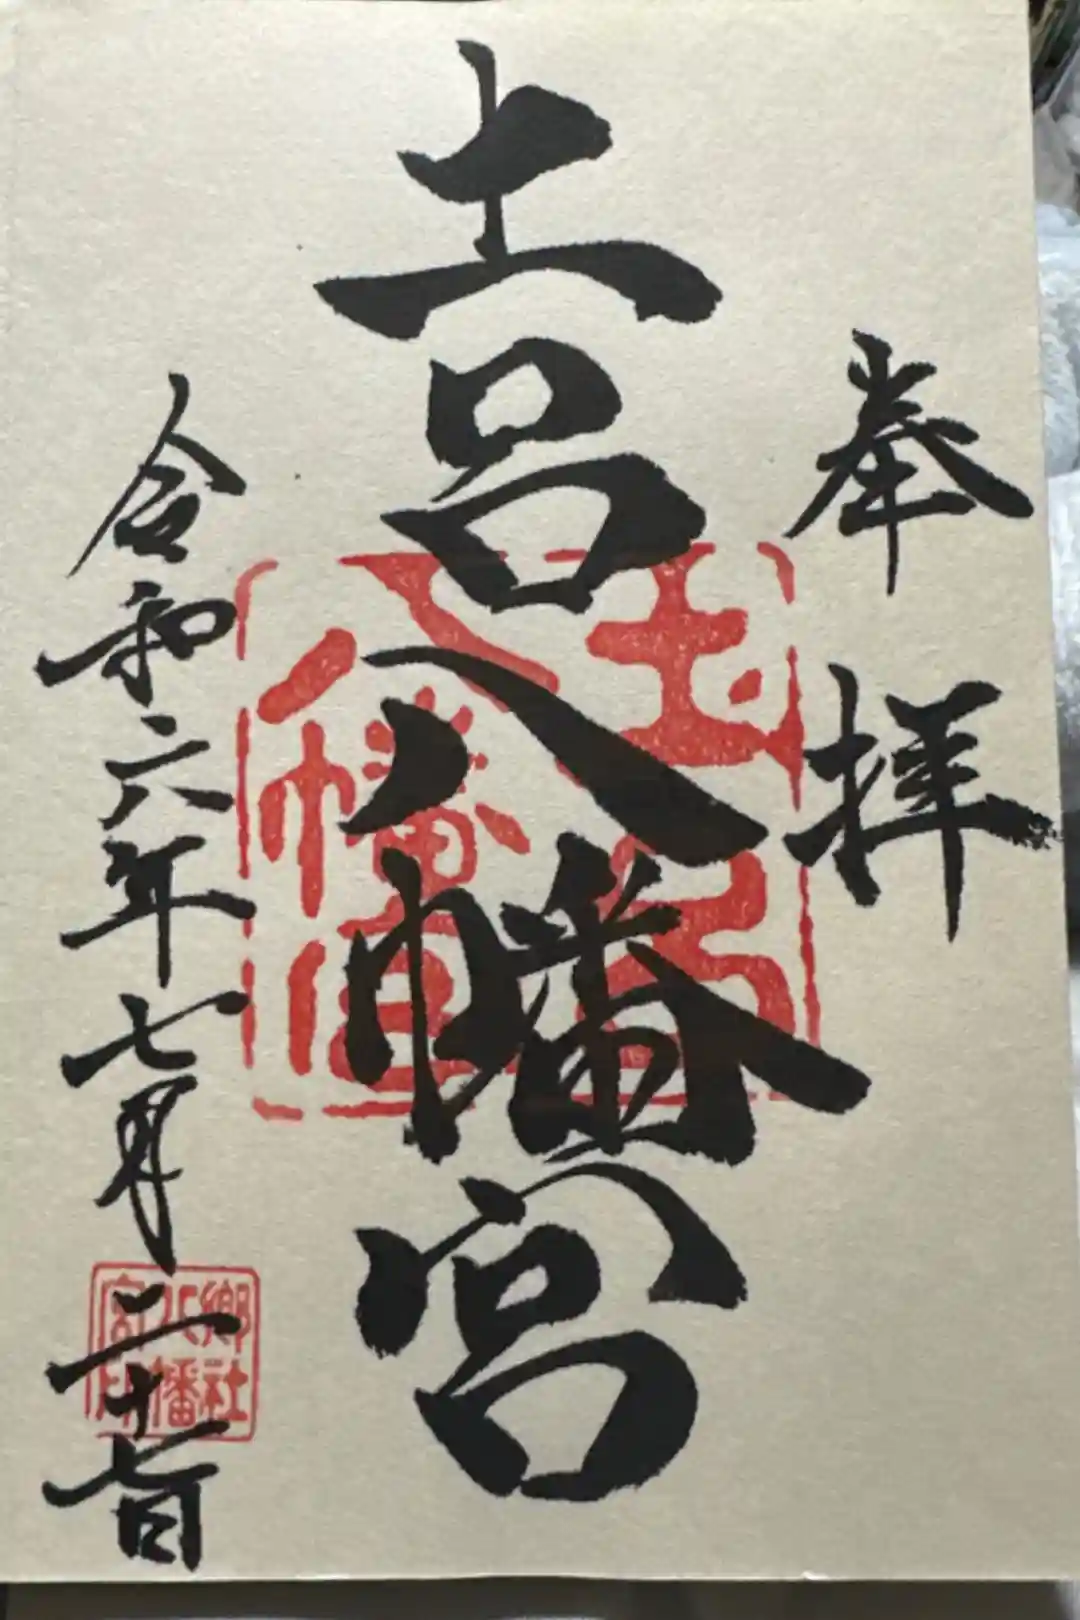 奉拝
土呂八幡宮
令和六年七月二十七日
土呂
八幡宮
郷社
八幡
宮印